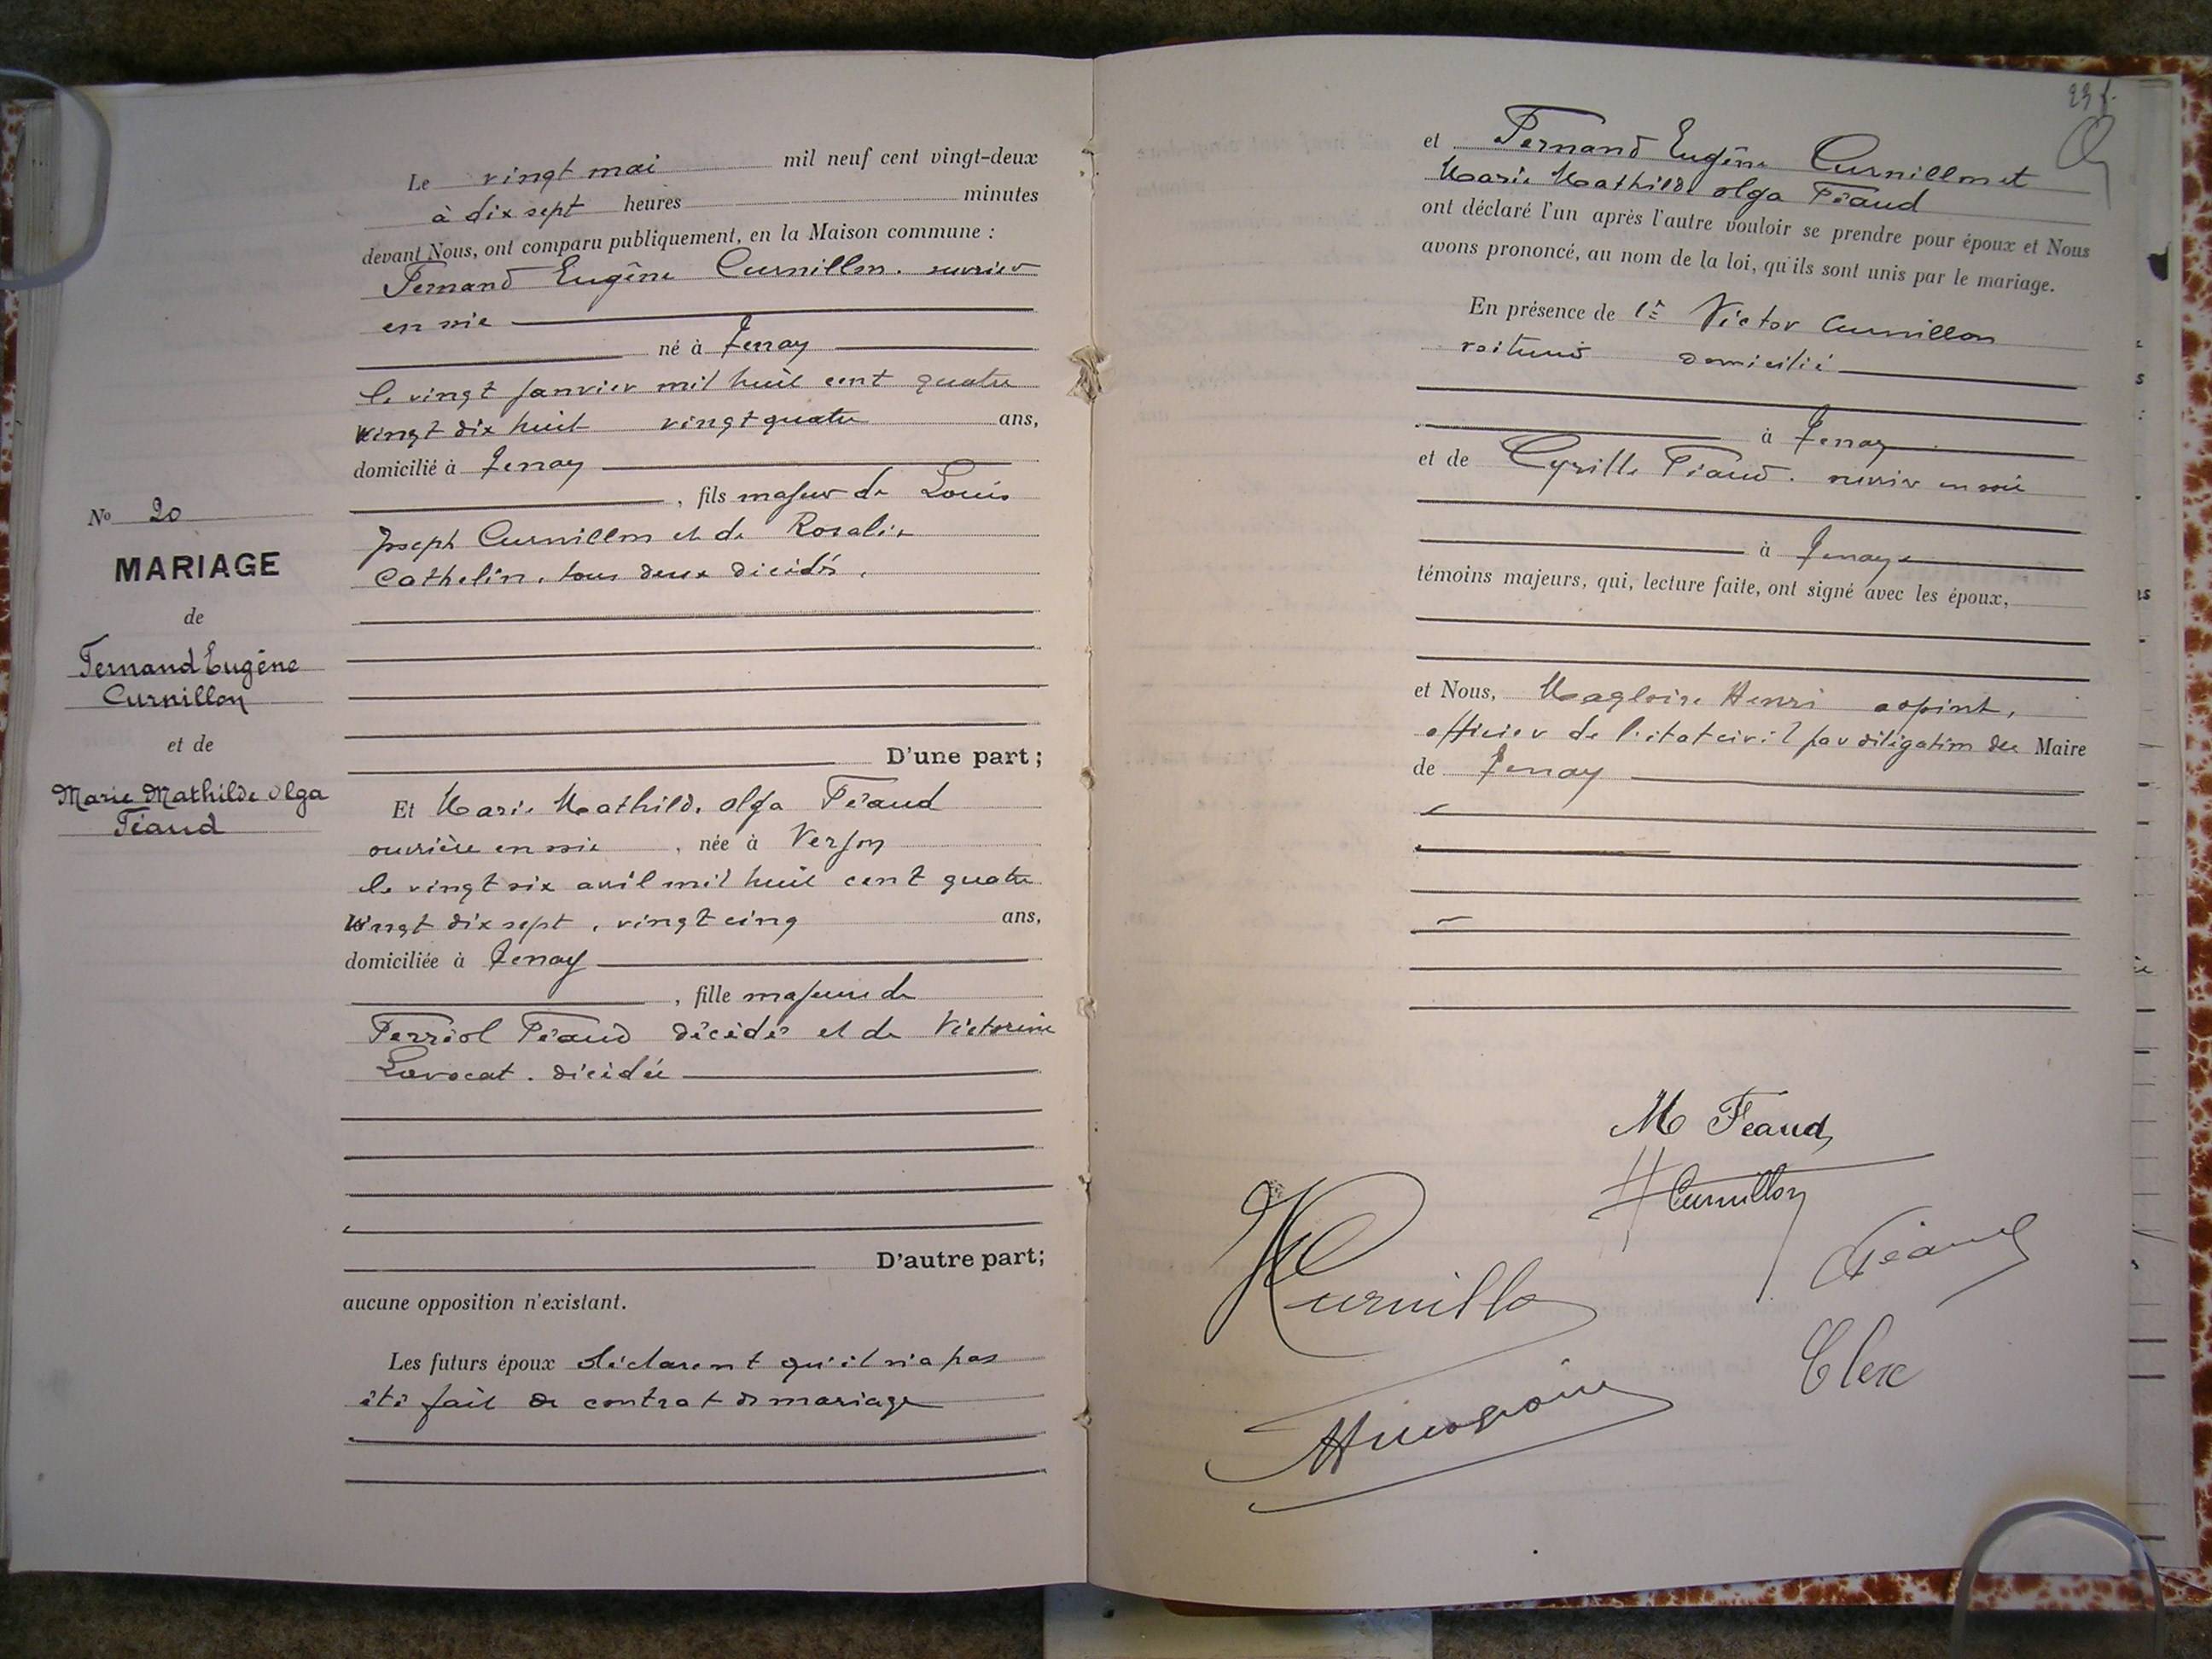 Le vingt mai mil neuf cent vingt-deux
à dix sept heures minutes
devant Nous, ont comparu publiquement, en la Maison commune :
Fernand Eugène Curnillon. ouvrier
en soie
né à Tenay
le vingt janvier mil huit cent quatre
vingt dix huit vingt quatre ans,
domicilié à Tenay
, fils majeur de Louis
Joseph Curnillon et de Rosalie
Cathelin, tous deux décédés,
D'une part ;
Et Marie Mathilde Olga Féaud
ouvrière en soie , née à Verjon
le vingt six avril mil huit cent quatre
vingt dix sept, vingt cinq ans,
domiciliée à Tenay
, fille majeure de
Ferréol Féaud décédé et de Victorine
Lavocat. décédée
D'autre part;
aucune opposition n'existant.
Les futurs époux déclarent qu'il n'a pas
été fait de contrat de mariage
No 20
MARIAGE
de
Fernand Eugène
Curnillon
et de
Marie Mathilde Olga
Féaud
et Fernand Eugène Curnillon et
Marie Mathilde Olga Féaud
ont déclaré l'un après l'autre vouloir se prendre pour époux et Nous
avons prononcé, au nom de la loi, qu'ils sont unis par le mariage.
En présence de Victor Curnillon
voiturier domicilié
à Tenay
et de Cyrille Féaud. ouvrier en soie
à Tenay
témoins majeurs, qui, lecture faite, ont signé avec les époux,
et Nous, Magloire Henri adjoint,
officier de l'état civil par délégation du Maire
de Tenay
M Féaud
Curnillon
Curnillon
Féaud
Clerc